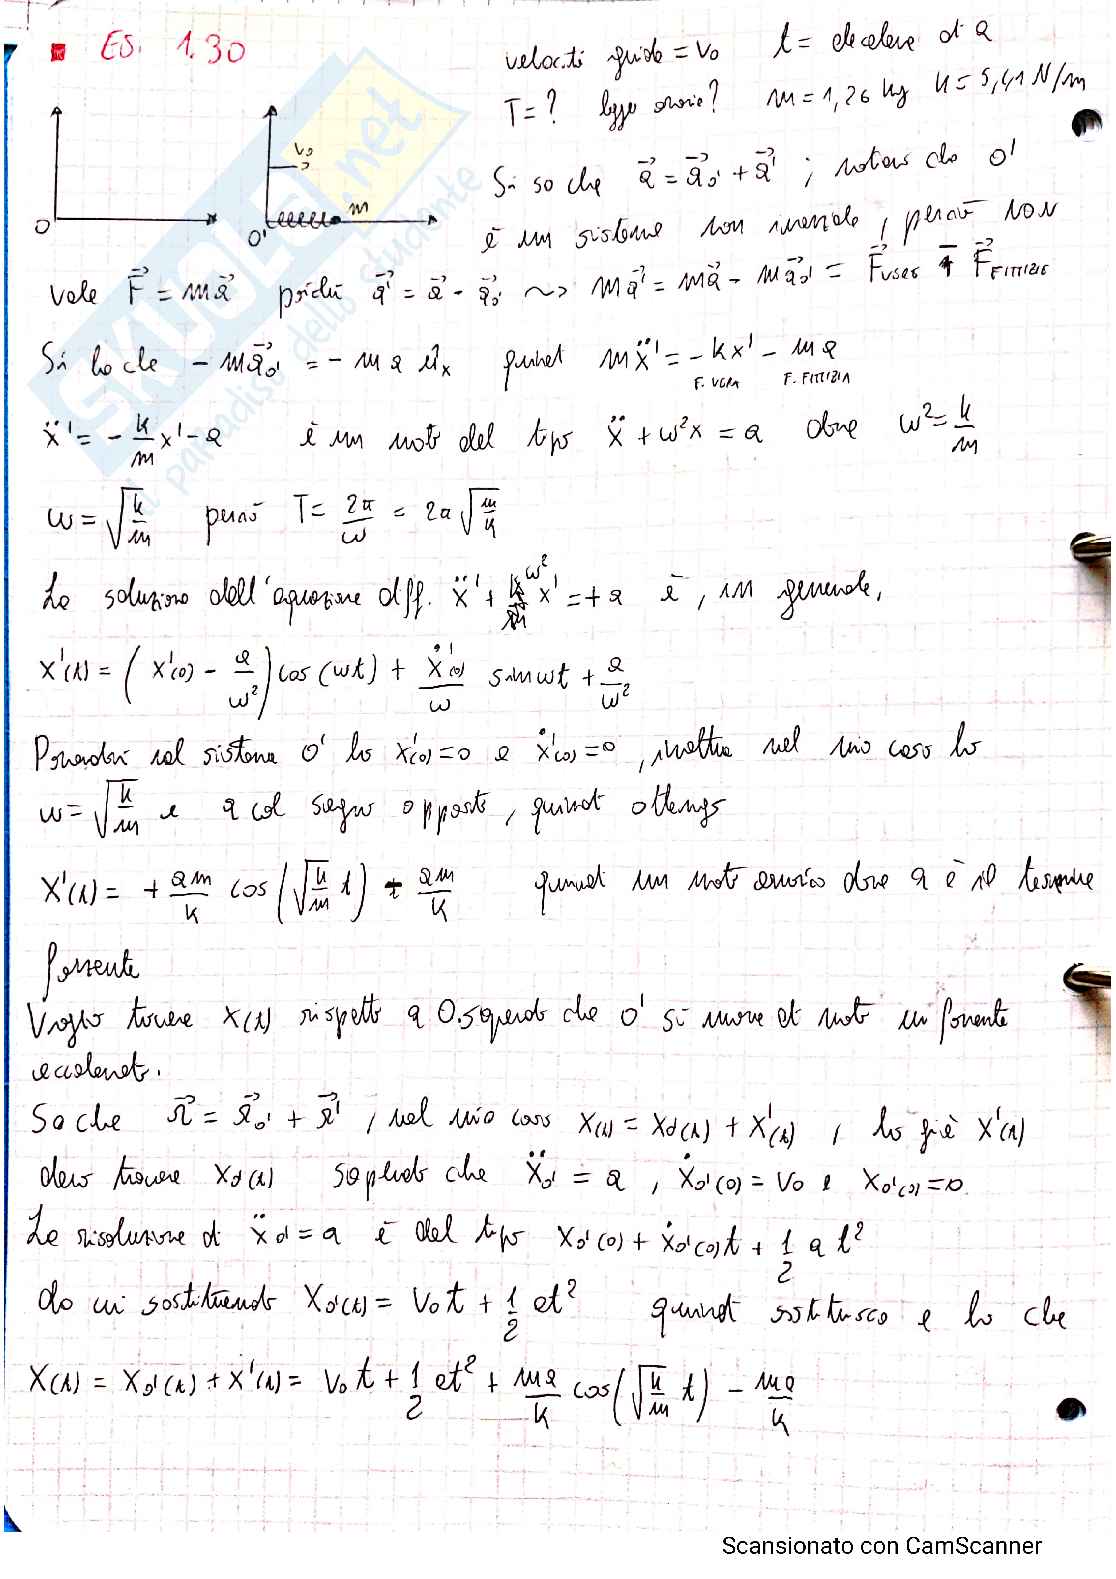 ES. 1.30
velocità guida = v₀ t = decelera di a
T = ? legge oraria? m = 1,26 kg k = 5,41 N/m
O O' v₀ m
Si so che a⃗ = a⃗₀' + a⃗' ; notare che O'
è un sistema non inerziale, perciò NON
vale F⃗ = ma⃗ poiché a⃗' = a⃗ - a⃗₀' ~> ma⃗' = ma⃗ - ma⃗₀' = F⃗ + F⃗ FITTIZIE
Si ha che - ma⃗₀' = - m a ûₓ quindi mẍ' = - kx' - ma
F. VERA F. FITTIZIA
ẍ' = - k/m x' - a è un moto del tipo ẍ + ω²x = a dove ω² = k/m
ω = √(k/m) perciò T = 2π/ω = 2π √(m/k)
La soluzione dell'equazione diff. ẍ' + ω² x' = + a è, in generale,
x'(t) = (x'(0) - a/ω²) cos(ωt) + ẋ'(0)/ω sin ωt + a/ω²
Ponendosi nel sistema O' ho x'(0) = 0 e ẋ'(0) = 0, inoltre nel mio caso ho
ω = √(k/m) e a col segno opposto, quindi ottengo
x'(t) = + am/k cos(√(k/m) t) - am/k quindi un moto armonico dove a è il termine
forzante
Voglio trovare x(t) rispetto a O. sapendo che O' si muove di moto uniformemente
accelerato.
So che r⃗ = r⃗₀' + r⃗', nel mio caso x(t) = x₀'(t) + x'(t), ho già x'(t)
devo trovare x₀'(t) sapendo che ẍ₀' = a, ẋ₀'(0) = v₀ e x₀'(0) = 0.
La risoluzione di ẍ₀' = a è del tipo x₀'(0) + ẋ₀'(0)t + 1/2 a t²
da cui sostituendo x₀'(t) = v₀t + 1/2 at² quindi sostituisco e ho che
x(t) = x₀'(t) + x'(t) = v₀t + 1/2 at² + ma/k cos(√(k/m) t) - ma/k
SKUOLA.net
il paradiso dello studente
Scansionato con CamScanner